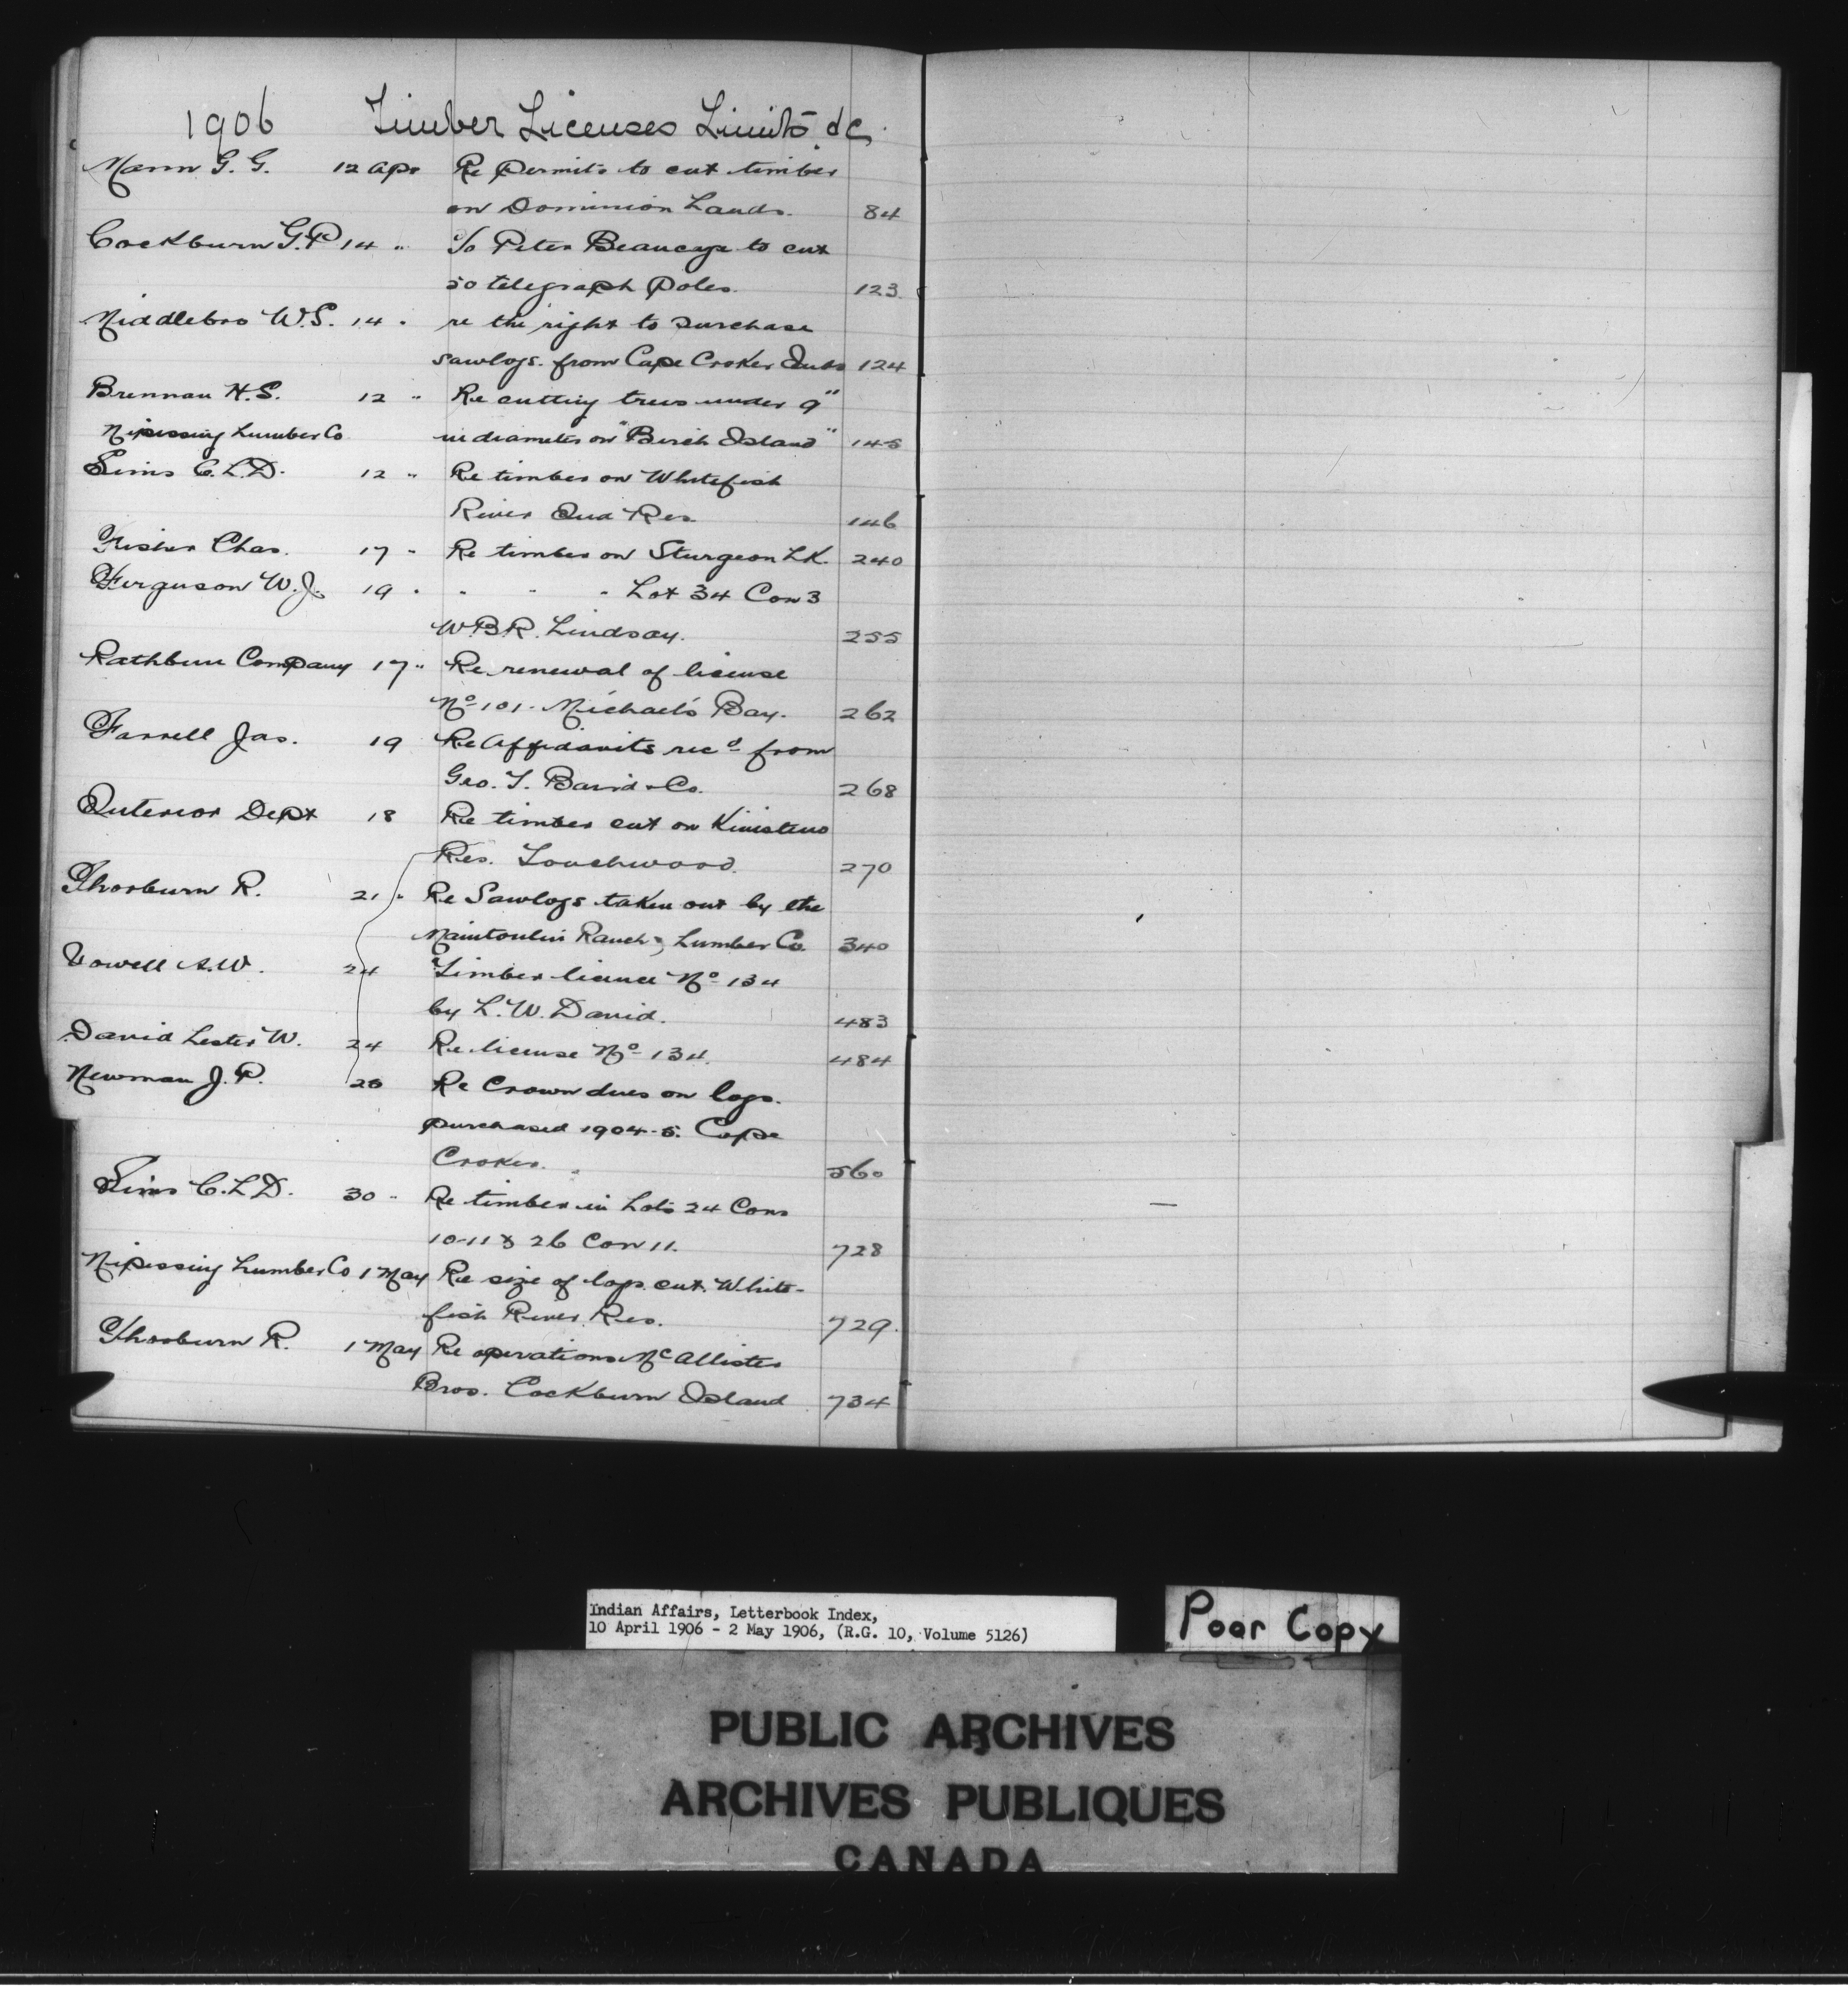 1906 Timber Licenses Limits &c.
Mann G. G. 12 Apr Re Permits to cut timber
on Dominion Lands. 84
Cockburn G.P 14 " To Peter Beaucage to cut
50 telegraph Poles. 123
Middlebro W.S. 14 " re the right to purchase
sawlogs. from Cape Croker Inds 124
Brennan H.S. 12 " Re cutting trees under 9"
Nipissing Lumber Co in diameter on "Birch Island" 145
Sims C.L.D. 12 " Re timber on Whitefish
River Ind Res. 146
Fisher Chas. 17 " Re timber on Sturgeon LK. 240
Ferguson W.J. 19 " " " " Lot 34 Con 3
W.B.R. Lindsay. 255
Rathbun Company 17 " Re renewal of license
No 101. Michael's Bay. 262
Farrell Jas. 19 Re Affidavits recd from
Geo. T. Baird & Co. 268
Interior Dept 18 Re timber cut on Kinistino
Res. Touchwood. 270
Thorburn R. 21 " Re Sawlogs taken out by the
Manitoulin Ranch & Lumber Co. 340
Vowell A.W. 24 Timber licence No 134
by L. W. David. 483
David Lester W. 24 Re license No 134. 484
Newman J. P. 26 Re Crown dues on logs.
purchased 1904-5. Cape
Croker. 560
Sims C.L.D. 30 " Re timber in Lots 24 Cons
10-11 & 26 Con 11. 728
Nipissing Lumber Co 1 May Re size of logs cut. White-
fish River Res. 729.
Thorburn R. 1 May Re operations McAllister
Bros. Cockburn Island 734
Indian Affairs, Letterbook Index,
10 April 1906 - 2 May 1906, (R.G. 10, Volume 5126)
Poor Copy
PUBLIC ARCHIVES
ARCHIVES PUBLIQUES
CANADA